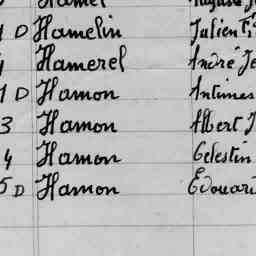 Hamel Auguste
D Hamelin Julien
Hamerel André Je
1 D Hamon Antimes
3 Hamon Albert J
4 Hamon Celestin
5 D Hamon Edouard